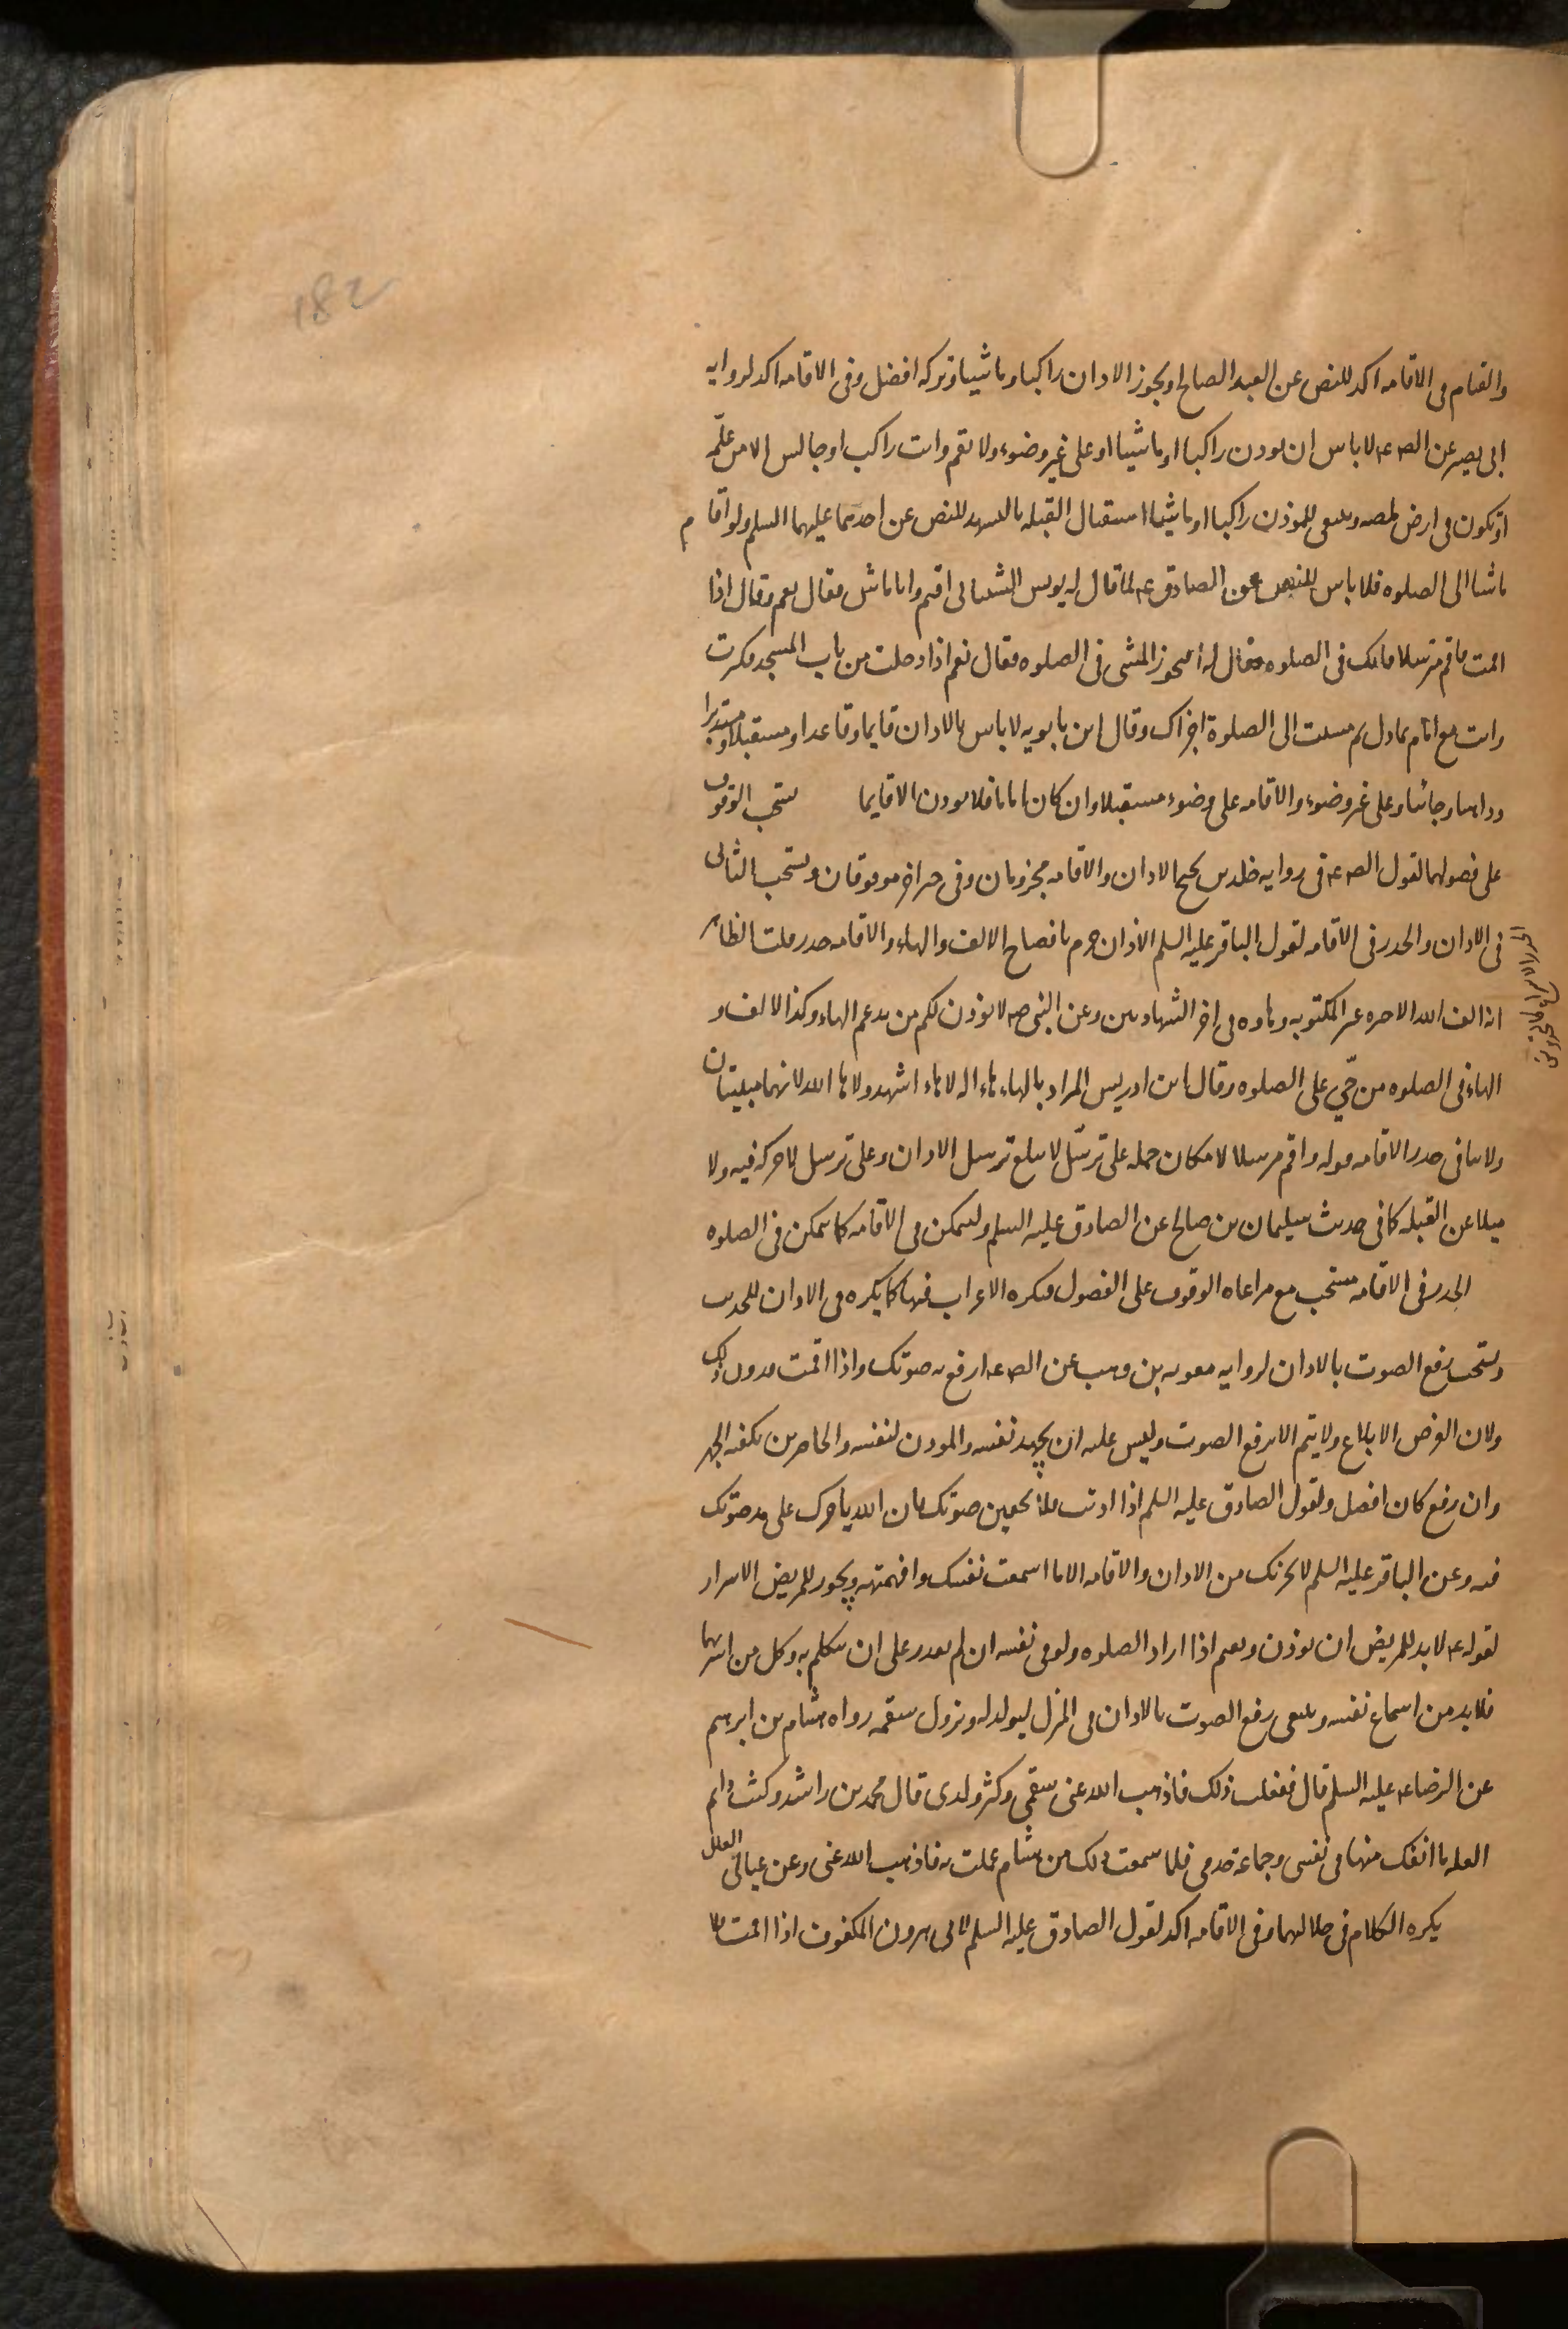 182
والقيام في الاقامه اكد للنص عن العبد الصالح ويجوز الاذان راكبا وماشيا وتركه افضل وفي الاقامه اكد لروايه
ابي بصير عن الص ع لا باس ان يوذن راكبا او ماشيا او على غير وضوء ولا تقم وانت راكب او جالس الا من علّه
او تكون في ارض ملصه وينبغي للموذن راكبا او ماشيا استقبال القبله بالتشهد للنص عن احدهما عليهما السلم ولو اقام
ماشيا الى الصلوه فلا باس للنص عن الصادق ع لما قال له يونس الشيباني اقيم وانا ماش فقال نعم وقال اذا
اقمت فاقم مترسلا فانك في الصلوه فقال له افيجوز المشي في الصلوه فقال نعم اذا دخلت من باب المسجد فكبرت
وانت مع امام عادل ثم مشيت الى الصلوة اجزاك وقال ابن بابويه لا باس بالاذان قايما وقاعدا ومستقبلا ومستدبرا
وذاهبا وجائيا وعلى غير وضوء والاقامه على وضوء مستقبلا وان كان اماما فلا يوذن الا قايما يستحب الوقوف
على فصولهما لقول الص ع في روايه خلد بن نجيح الاذان والاقامه مجزومان وفي خبر اخر موقوفان ويستحب التاني
في الاذان والحدر في الاقامه لقول الباقر عليه السلم الاذان جزم بافصاح الالف والهاء والاقامه حدر قلت الظاهر
انه الف الله الاخيره غير المكتوبه وهاوه في اخر الشهادتين وعن النبي ص لا يوذن لكم من يدغم الهاء وكذا الالف و
الهاء في الصلوه من حّي على الصلوه وقال ابن ادريس المراد بالهاء هاء اله لا هاء اشهد ولا ها الله لانهما مبنيتان
ولا ينافي حدر الاقامه قوله واقم مترسلا لامكان حمله على ترسّل لا يبلغ ترسل الاذان وعلى ترسل لا حركه فيه ولا
ميلا عن القبله كما في حديث سليمان بن صالح عن الصادق عليه السلم وليتمكن في الاقامه كما يتمكن في الصلوه
الحدر في الاقامه مستحب مع مراعاه الوقوف على الفصول فيكره الاعراب فيها كما يكره في الاذان للحديث
ويستحب رفع الصوت بالاذان لروايه معويه بن وهب عن الص ع ارفع به صوتك واذا اقمت فدون ذلك
ولان الغرض الابلاغ ولا يتم الا برفع الصوت وليس عليه ان يجهد نفسه والموذن لنفسه والحاضرين يكفيه الجهر
وان رفع كان افضل ولقول الصادق عليه السلم اذا اذنت فلا تخفين صوتك فان الله ياجرك على مد صوتك
فيه وعن الباقر عليه السلم لا يجزئك من الاذان والاقامه الا ما اسمعت نفسك وافهمته ويجوز للمريض الاسرار
لقوله ع لا بد للمريض ان يوذن ويقيم اذا اراد الصلوه ولو في نفسه ان لم يقدر على ان يتكلم به وكل من اسر بهما
فلا بد من اسماع نفسه وينبغي رفع الصوت بالاذان في المنزل ليولد له ويزول سقمه رواه هشام بن ابرهيم
عن الرضا ع عليه السلم قال ففعلت ذلك فاذهب الله عني سقمي وكثر ولدي قال محمد بن راشد وكنت دايم
العله ما انفك منها في نفسي وجماعة خدمي فلما سمعت ذلك من هشام عملت به فاذهب الله عني وعن عيالي العلل
يكره الكلام في خلالهما وفي الاقامه اكد لقول الصادق عليه السلم لابي هرون المكفوف اذا اقمت
الحدر الاسراع